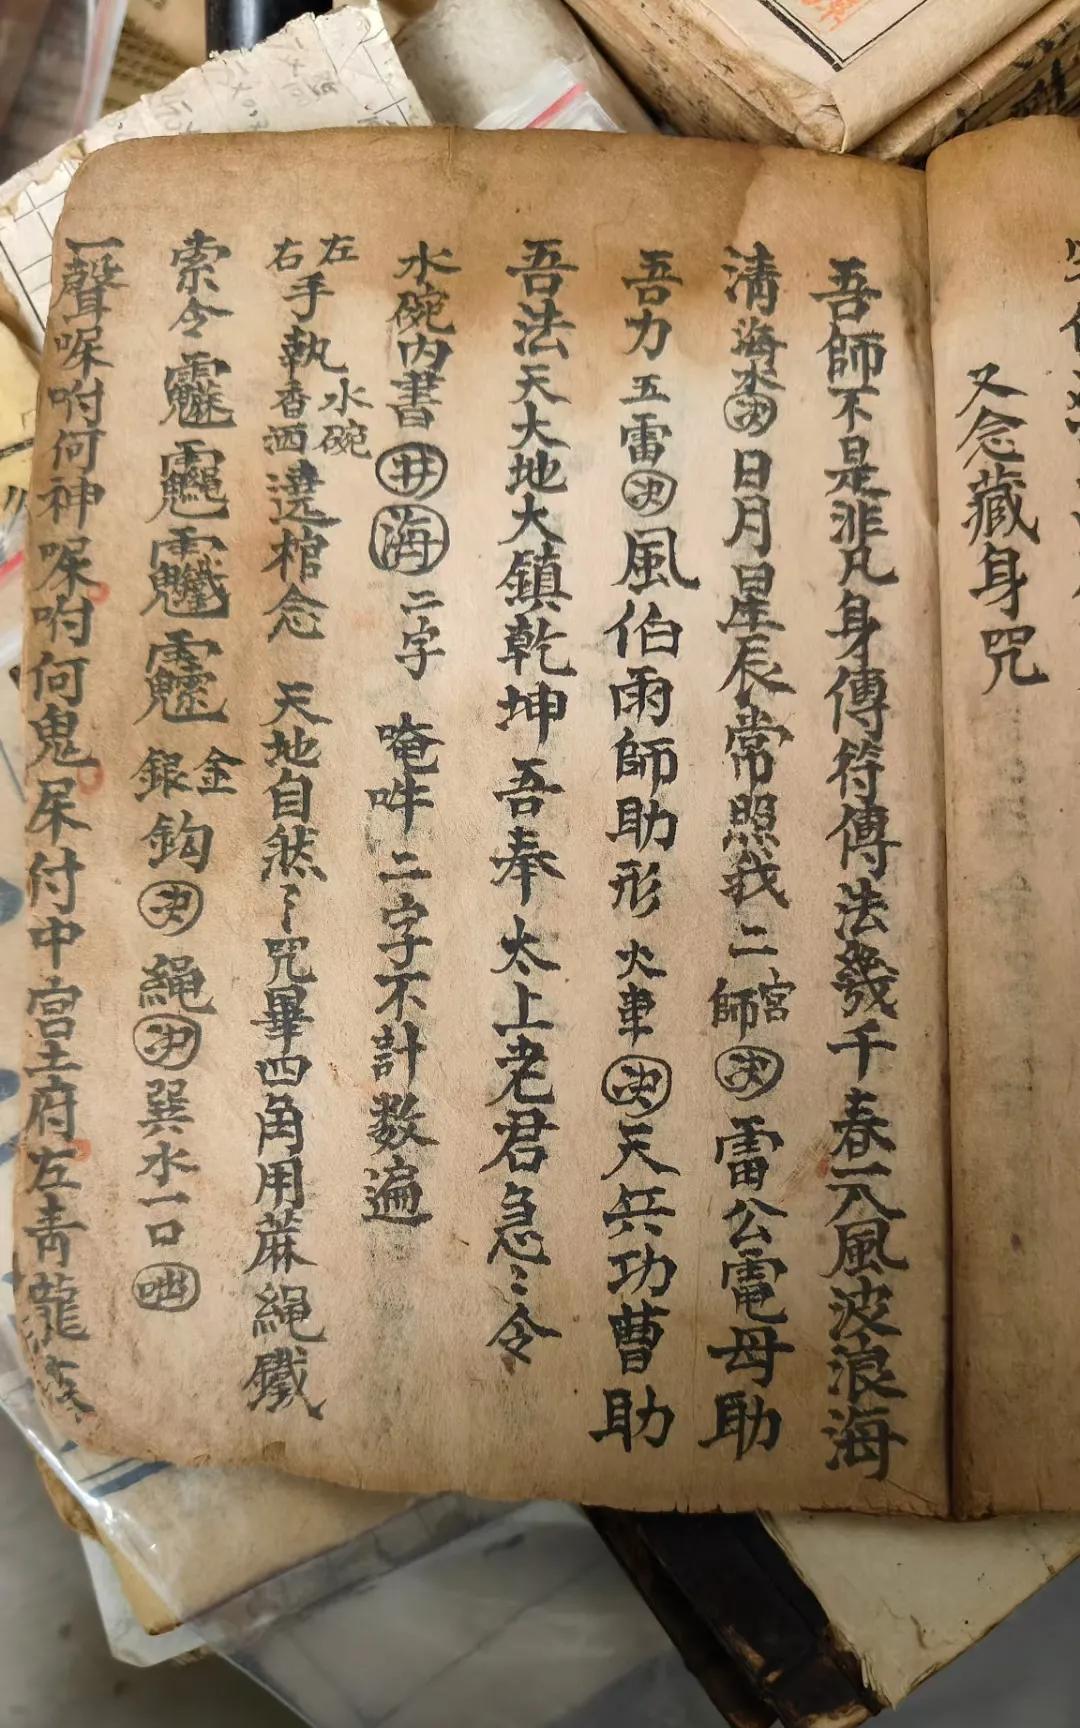 又念藏身咒
吾師不是非凡身傳符傳法幾千春一入風波浪海
清海水決日月星辰常照我二宮師決雷公電母助
吾力五雷決風伯雨師助形火車決天兵功曹助
吾法天大地大鎮乾坤吾奉太上老君急〻令
水碗內書井海二字唵吽二字不計數遍
左手執水碗右手執香洒遶棺念天地自然〻咒畢四角用蔴繩鐵
索令金銀鈎決繩決巽水一口
一聲㖇咐何神㖇咐何鬼㞋付中宮土府左青龍